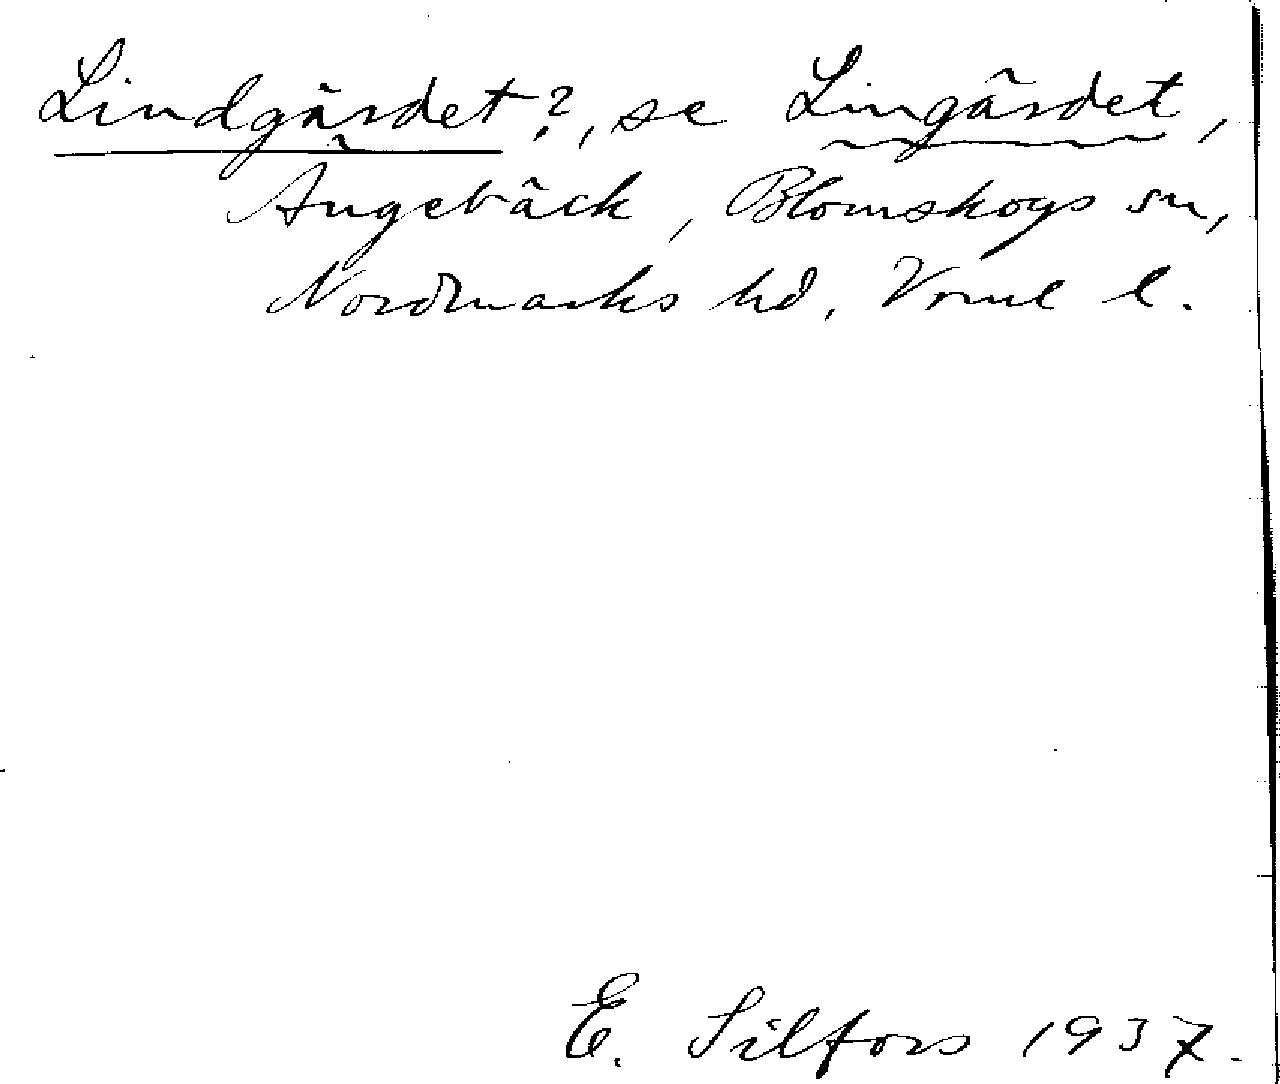 Lindgärdet?, se Lingärdet,
Ängebäck, Blomskogs sn,
Nordmarks hd, Vrml l.
E. Silfors 1937.